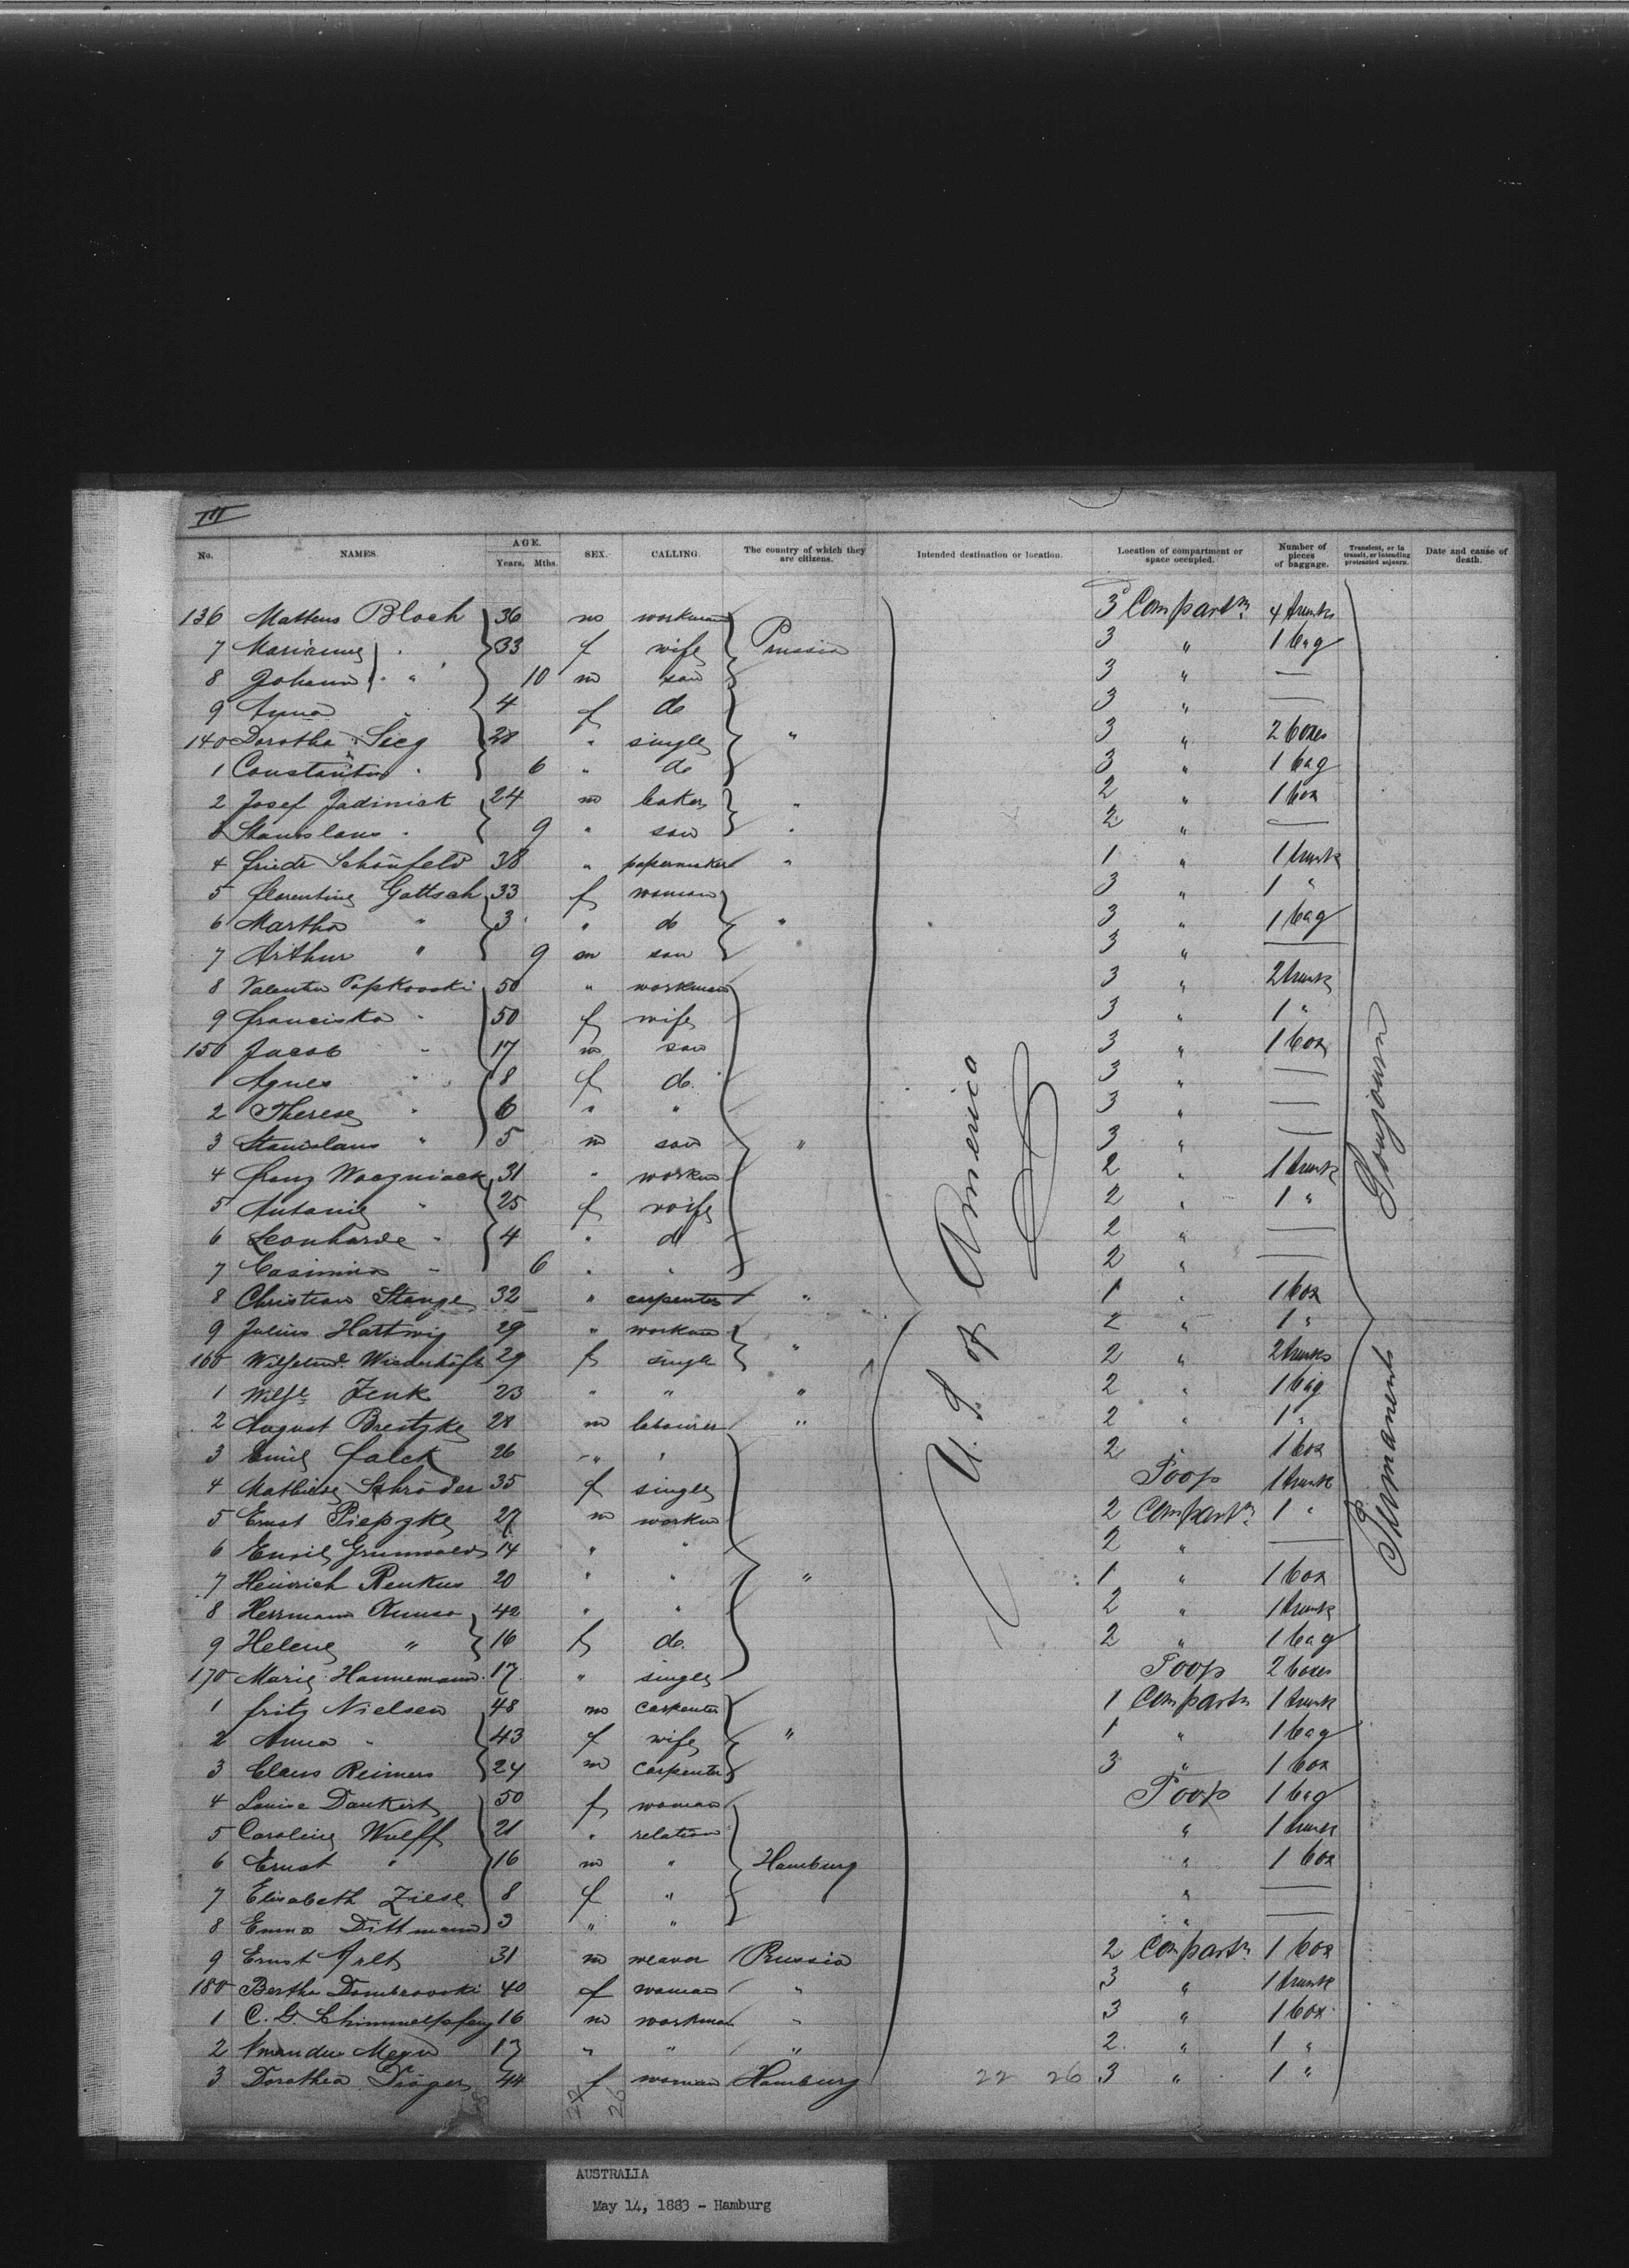 III
No. NAMES. AGE. Years. Mths. SEX. CALLING. The country of which they are citizens. Intended destination or location. Location of compartment or space occupied. Number of pieces of baggage. Transient, or in transit, or intending protracted sojourn. Date and cause of death.
136 Matheus Bloch 36 m workman Prussia 3 Compartm. 4 trunks
7 Marianne " 33 f wife 3 " 1 bag
8 Johann " 10 m son 3 " —
9 Anna " 4 f do 3 " —
140 Dorothea Sieg 28 " single " 3 " 2 boxes
1 Constantin " 6 " do 3 " 1 bag
2 Josef Jadiniak 24 m baker " 2 " 1 box
3 Stanislaus " 9 " son " 2 " —
4 Friedr Schönfeld 38 " papermaker " 1 " 1 trunk
5 Florentine Gottsch 33 f woman 3 " 1 "
6 Martha " 3 " do " 3 " 1 bag
7 Arthur " 9 m son 3 " —
8 Valentin Popkowski 50 " workman 3 " 2 trunks
9 Franciska " 50 f wife 3 " 1 "
150 Jacob " 17 m son 3 " 1 box
1 Agnes " 8 f do. 3 " —
2 Therese " 6 " " 3 " —
3 Stanislaus " 5 m son " 3 " —
4 Franz Woczniack 31 " workm 2 " 1 trunk
5 Antonie " 25 f wife 2 " 1 "
6 Leonharde " 4 " d 2 " —
7 Casimira " 6 " " 2 " —
8 Christian Stange 32 " carpenter " 1 " 1 box
9 Julius Hartwig 29 " workm 2 " 1 "
160 29 f single " 2 " 2 trunks
1 Wilhe Zenk 23 " " " 2 " 1 bag
2 August Bretzke 28 m labourer " 2 " 1 "
3 Emil Falck 26 " " 2 1 box
4 Mathilde Schröder 35 f single Poop 1 trunk
5 Ernst Piepzke 27 m workm 2 Compartm. 1 "
6 Emil Grunwald 14 " " 2 " —
7 Heinrich Renkus 20 " " " 1 " 1 box
8 Herrmann 42 " " 2 " 1 trunk
9 Helene " 16 f do. 2 " 1 bag
170 Marie Hannemann 17 " single Poop 2 boxes
1 Fritz Nielsen 48 m carpenter 1 Compartm 1 trunk
2 Anna " 43 f wife " 1 " 1 bag
3 Claus Reimers 24 m carpenter 3 " 1 box
4 Louise Dankert 50 f woman Poop 1 bag
5 Caroline Wulff 21 " relation " 1 trunk
6 Ernst " 16 m " Hamburg " 1 box
7 Elisabeth Ziese 8 f " " —
8 Emma Dittmann 3 " " " —
9 Ernst Arlt 31 m weaver Prussia 2 Compartm 1 box
180 Bertha Dombrowski 40 f woman " 3 " 1 trunk
1 C. G. Schimmelpfeng 16 m workman " 3 " 1 box
2 Meyn 17 " " " 2 " 1 "
3 Dorothea 44 f woman Hamburg 22 26 3 " 1 "
U. S. of America
Permanent Sojourn
AUSTRALIA
May 14, 1883 - Hamburg